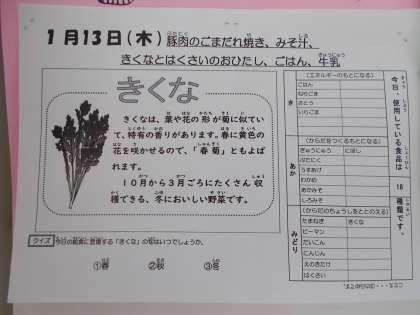 1月13日(木)豚肉のごまだれ焼き、みそ汁、
きくなとはくさいのおひたし、ごはん、牛乳
きくな
きくなは、葉や花の形が菊に似てい
て、特有の香りがあります。春に黄色の
花を咲かせるので、「春菊」ともよば
れます。
10月から3月ごろにたくさん収
穫できる、冬においしい野菜です。
クイズ 今日の給食に登場する「きくな」の旬はいつでしょうか。
①春 ②秋 ③冬
今日、使用している食品は 18 種類です。
き
(エネルギーのもとになる)
ごはん
ねりごま
さとう
いりごま
あか
(からだをつくるもとになる)
ぎゅうにゅう にぼし
ぶたにく
うすあげ
わかめ
あかみそ
しろみそ
みどり
(からだのちょうしをととのえる)
たまねぎ きくな
ピーマン
だいこん
にんじん
えのきたけ
はくさい